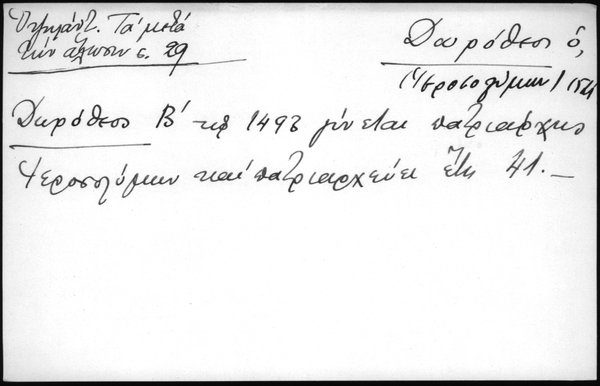 Ὑψηλάντ. Τά μετά
τὴν ἅλωσιν σ. 29
Δωρόθεος ὁ,
Ἱεροσολύμων
Δωρόθεος Β΄ τῷ 1493 γίνεται πατριάρχης
Ἱεροσολύμων καί πατριαρχεύει ἔτη 41.—